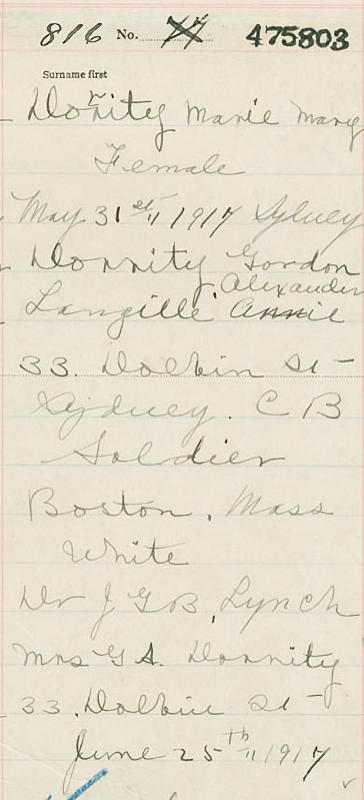 816 No. 74 475803
Surname first
Dornity Marie Mary
Female
May 31st, 1917 Sydney
Dornity, Gordon
Alexander
Langille Annie
33. Dolbin St
Sydney. C B
Soldier
Boston, Mass
White
Dr J G B, Lynch
Mrs G A. Dornity
33. Dolbin St
June 25th, 1917